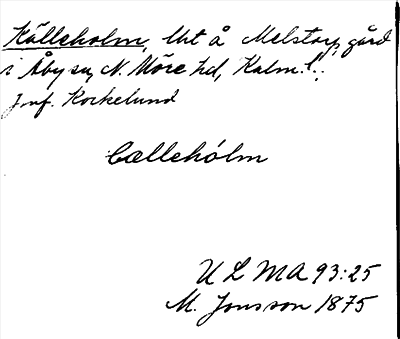 Källeholm, lht å Melstorp, gård
i Åby sn, N. Möre hd, Kalm. l.
Jmf. Rockelund
Cællehólm
ULMA 93:25
M. Jonsson 1875